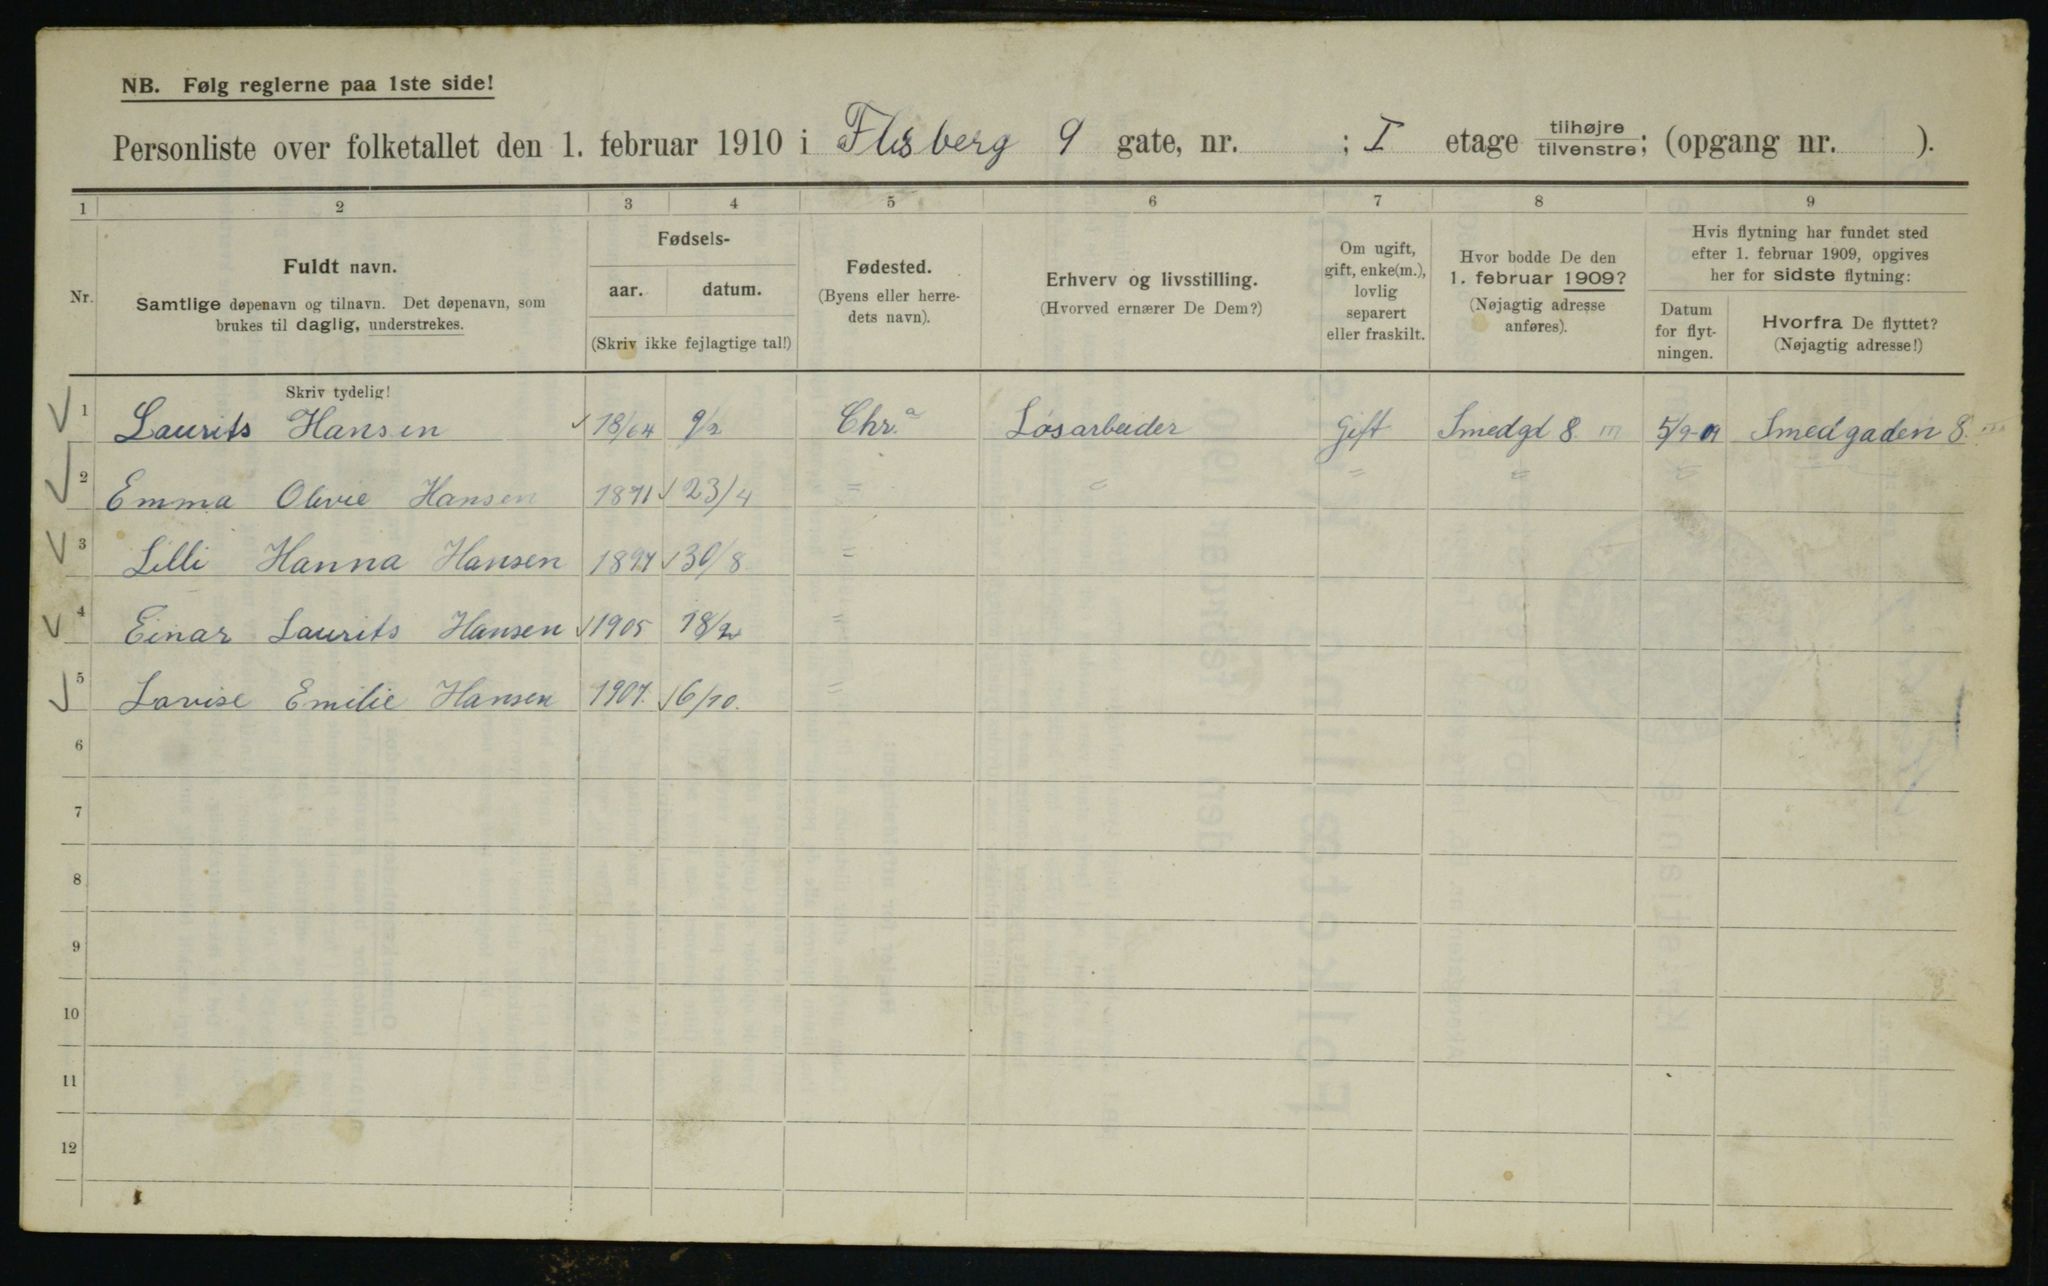 NB. Følg reglerne paa 1ste side!
Personliste over folketallet den 1. februar 1910 i Flesberg 9 gate, nr. ; I etage tilhøjre tilvenstre; (opgang nr. ).
1 2 3 4 5 6 7 8 9
Nr.
Fuldt navn.
Samtlige døpenavn og tilnavn. Det døpenavn, som
brukes til daglig, understrekes.
Fødsels-
aar. datum.
(Skriv ikke fejlagtige tal!)
Fødested.
(Byens eller herre-
dets navn).
Erhverv og livsstilling.
(Hvorved ernærer De Dem?)
Om ugift,
gift, enke(m.),
lovlig
separert
eller fraskilt.
Hvor bodde De den
1. februar 1909?
(Nøjagtig adresse
anføres).
Hvis flytning har fundet sted
efter 1. februar 1909, opgives
her for sidste flytning:
Datum
for flyt-
ningen.
Hvorfra De flyttet?
(Nøjagtig adresse!)
Skriv tydelig!
1 Laurits Hansen 18/64 9/2 Chr.a Løsarbeider Gift Smedgd 8 5/9-09 Smedgaden 8.
2 Emma Olivie Hansen 1871 23/4 " " " " "
3 Lilli Hanna Hansen 1897 30/8 "
4 Einar Laurits Hansen 1905 18/2 "
5 Lovise Emilie Hansen 1907. 6/10. "
6
7
8
9
10
11
12